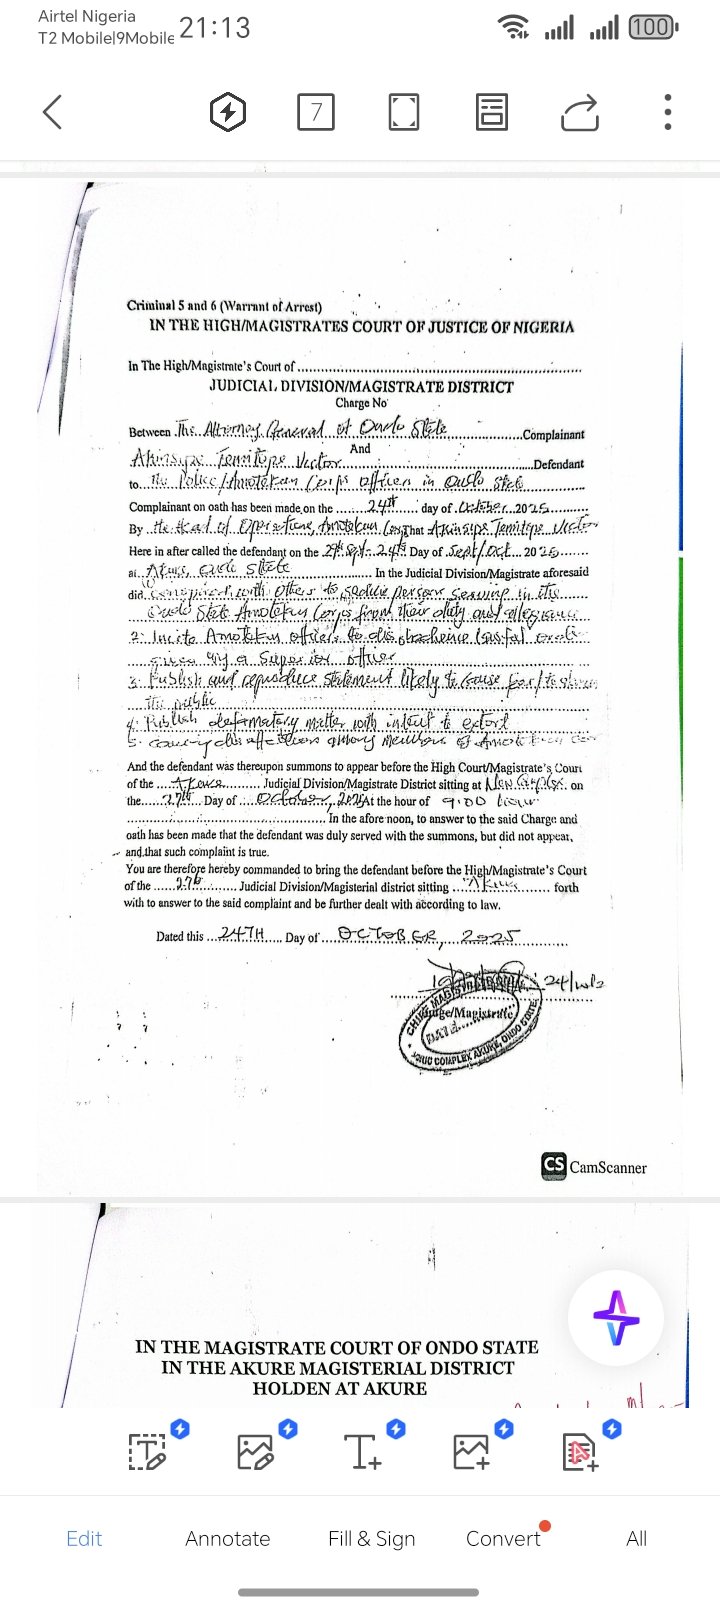 Airtel Nigeria
T2 Mobile|9Mobile 21:13
100
7
Criminal 5 and 6 (Warrant of Arrest)
IN THE HIGH/MAGISTRATES COURT OF JUSTICE OF NIGERIA
In The High/Magistrate's Court of
JUDICIAL DIVISION/MAGISTRATE DISTRICT
Charge No
Between The Attorney General of Ondo State Complainant
And
Temitope Victor Defendant
to The Police/Amotekun Corps officer in Ondo State
Complainant on oath has been made on the 24th day of October 2025
By the Head of Operations, Amotekun Corps That Temitope Victor
Here in after called the defendant on the 29th Sept - 24th Day of Sept/Oct 2025
at Akure, Ondo State In the Judicial Division/Magistrate aforesaid
did conspired with others to seduce persons serving in the
Ondo State Amotekun Corps from their duty and allegiance
2. Incite Amotekun officers to disobedience lawful order
given by a Superior officer
3. Publish and reproduce statement likely to cause fear to
the public
4. Publish defamatory matter with intent to extort
5. disaffection among members of Amotekun
And the defendant was thereupon summons to appear before the High Court/Magistrate's Court
of the Akure Judicial Division/Magistrate District sitting at New on
the 27th Day of October, 2025 At the hour of 9:00 hour
In the afore noon, to answer to the said Charge and
oath has been made that the defendant was duly served with the summons, but did not appear,
and that such complaint is true.
You are therefore hereby commanded to bring the defendant before the High/Magistrate's Court
of the 27th Judicial Division/Magisterial district sitting Akure forth
with to answer to the said complaint and be further dealt with according to law.
Dated this 24TH Day of OCTOBER, 2025
Judge/Magistrate
CHIEF MAGISTRATE
DATE
COMPLEX AKURE, ONDO STATE
CS CamScanner
IN THE MAGISTRATE COURT OF ONDO STATE
IN THE AKURE MAGISTERIAL DISTRICT
HOLDEN AT AKURE
Edit Annotate Fill & Sign Convert All